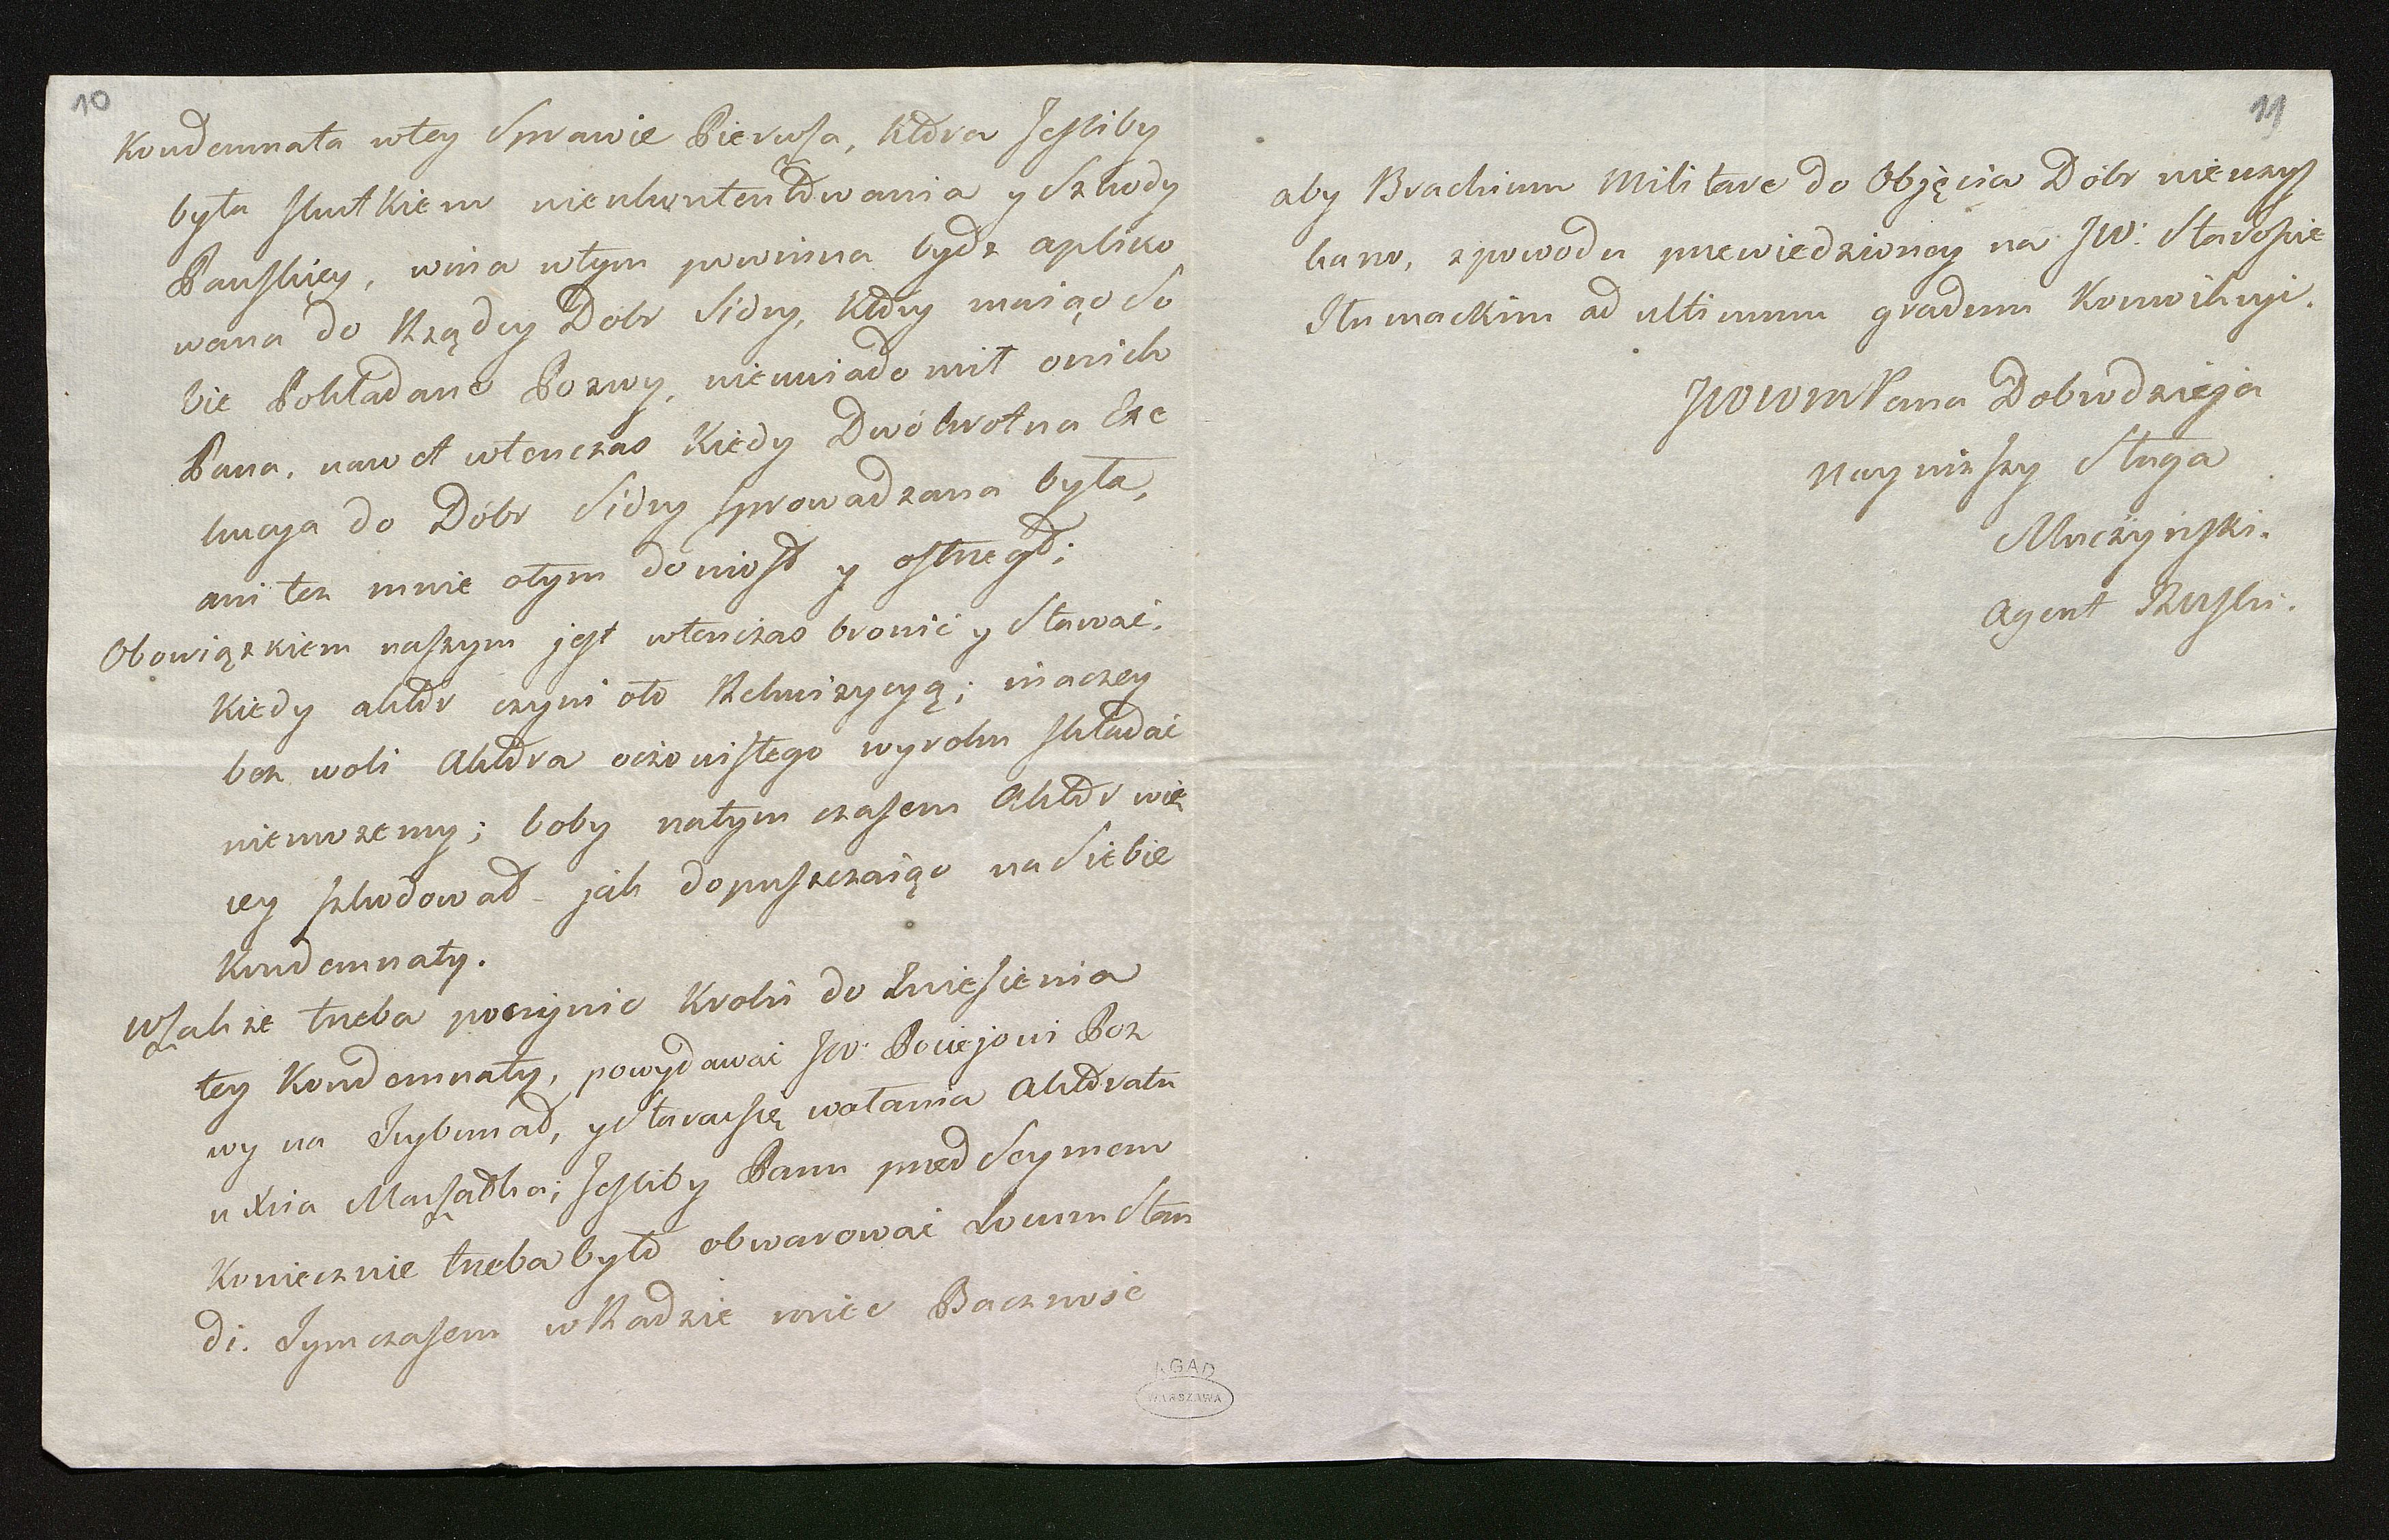 10
Kondemnata wtey Sprawie Pierwsza, która Jeśliby
była skutkiem nieukontentowania y Szkody
Pańskiey, wina wtym powinna bydz apliko
wana do Rządcy Dóbr Sidry, który maiąc So
bie Pokładane Pozwy, nieuwiadomił onich
Pana, nawet wtenczas kiedy Dwókrotna Exe
kucya do Dóbr Sidry sprowadzana była,
ani tez mnie otym doniosł y ostrzegł;
Obowiązkiem naszym jest wtenczas bronić y Stawać,
Kiedy aktor czyni oto Rekwizycyą; inaczey
bez woli Aktora oczewistego wyroku składać
niemozemy; boby natym czasem Aktor wię
cey szkodował jak dopuszczaiąc na Siebie
Kondemnaty.
Wszakze trzeba poczynic Kroki do Zniesienia
tey Kondemnaty, powydawać JW: Pociejowi Poz
wy na Trybunał, y Starać się wołania Aktoratu
u Xcia Marszałka; Jeśliby Panu przed Seymem
Koniecznie trzeba było obwarować Locum Stan
di. Tymczasem w Radzie miec Baczność
11
aby Brachium Militare do Objęcia Dóbr nieuzys
kano, zpowodu przewiedzioney na JW: Starośćie
Tłumackim ad ultimum gradum Konwikcyi.
JWWM Pana Dobrodzieja
Nayniższy Sługa
Muczyński.
Agent Ruski.
AGAD
WARSZAWA